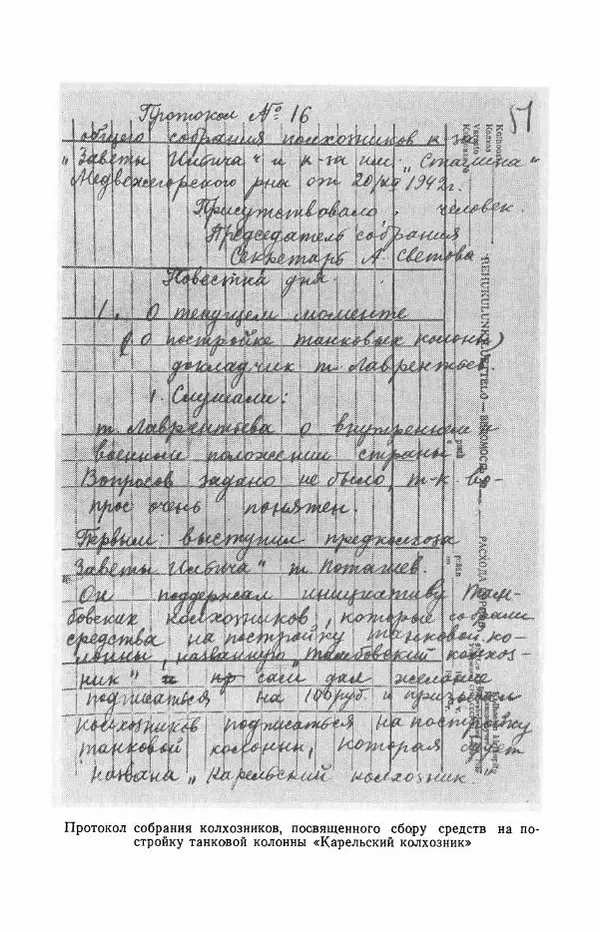 Протокол № 16
51
общего собрания колхозников к-за
"Заветы Ильича" и к-за им. "Сталина"
Медвежегорского р-на от 20/XII 1942г.
Присутствовало человек.
Председатель собрания
Секретарь А. Светова
Повестка дня.
1. О текущем моменте
(О постройке танковых колонн)
докладчик т. Лаврентьев.
1. Слушали:
т. Лаврентьева о внутреннем и
военном положении страны
Вопросов задано не было, т-к. во-
прос очень понятен.
Первым выступил предколхоза
Заветы Ильича" т. Поташев.
Он поддержал инициативу Там-
бовских колхозников, которые собрали
средства на постройку танковой ко-
лонны, названную "тамбовский колхоз-
ник" и сам дал желание
подписаться на 100 руб. и призывал
колхозников подписаться на постройку
танковой колонны, которая будет
названа "Карельский колхозник.
Kolhoosi
Колхоз
REHUKULUNKILUETTELO — ВЕДОМОСТЬ
РАСХОДА КОРМОВ
Протокол собрания колхозников, посвященного сбору средств на по-
стройку танковой колонны «Карельский колхозник»